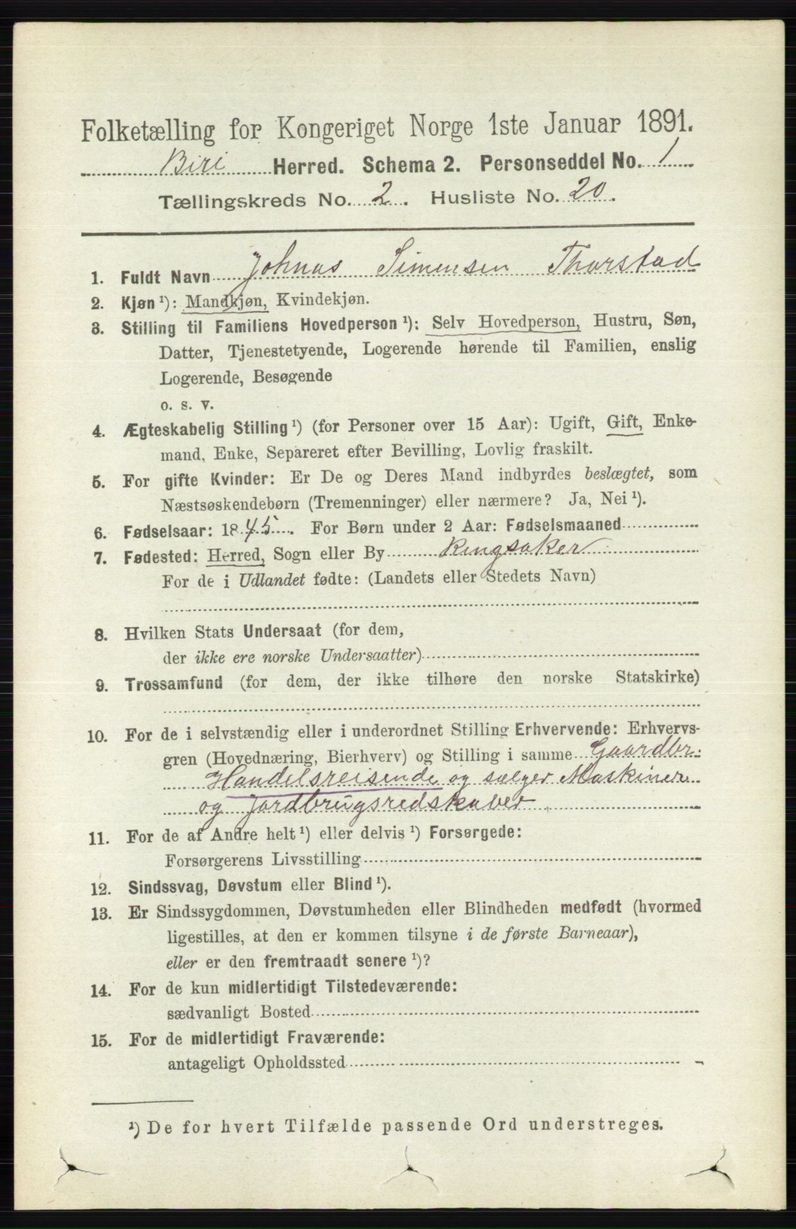 Folketælling for Kongeriget Norge 1ste Januar 1891.
Biri Herred. Schema 2. Personseddel No. 1
Tællingskreds No. 2. Husliste No. 20.
1. Fuldt Navn Johnas Simensen Thorstad
2. Kjøn ¹): Mandkjøn, Kvindekjøn.
3. Stilling til Familiens Hovedperson ¹): Selv Hovedperson, Hustru, Søn,
Datter, Tjenestetyende, Logerende hørende til Familien, enslig
Logerende, Besøgende
o. s. v.
4. Ægteskabelig Stilling ¹) (for Personer over 15 Aar): Ugift, Gift, Enke-
mand, Enke, Separeret efter Bevilling, Lovlig fraskilt.
5. For gifte Kvinder: Er De og Deres Mand indbyrdes beslægtet, som
Næstsøskendebørn (Tremenninger) eller nærmere? Ja, Nei ¹).
6. Fødselsaar: 1845. For Børn under 2 Aar: Fødselsmaaned
7. Fødested: Herred, Sogn eller By Ringsaker
For de i Udlandet fødte: (Landets eller Stedets Navn)
8. Hvilken Stats Undersaat (for dem,
der ikke ere norske Undersaatter)
9. Trossamfund (for dem, der ikke tilhøre den norske Statskirke)
10. For de i selvstændig eller i underordnet Stilling Erhvervende: Erhvervs-
gren (Hovednæring, Bierhverv) og Stilling i samme Gaardbr.
Handelsreisende og sælger Maskiner
og Jordbrugsredskaber
11. For de af Andre helt ¹) eller delvis ¹) Forsørgede:
Forsørgerens Livsstilling
12. Sindssvag, Døvstum eller Blind ¹).
13. Er Sindssygdommen, Døvstumheden eller Blindheden medfødt (hvormed
ligestilles, at den er kommen tilsyne i de første Barneaar),
eller er den fremtraadt senere ¹)?
14. For de kun midlertidigt Tilstedeværende:
sædvanligt Bosted
15. For de midlertidigt Fraværende:
antageligt Opholdssted
¹) De for hvert Tilfælde passende Ord understreges.